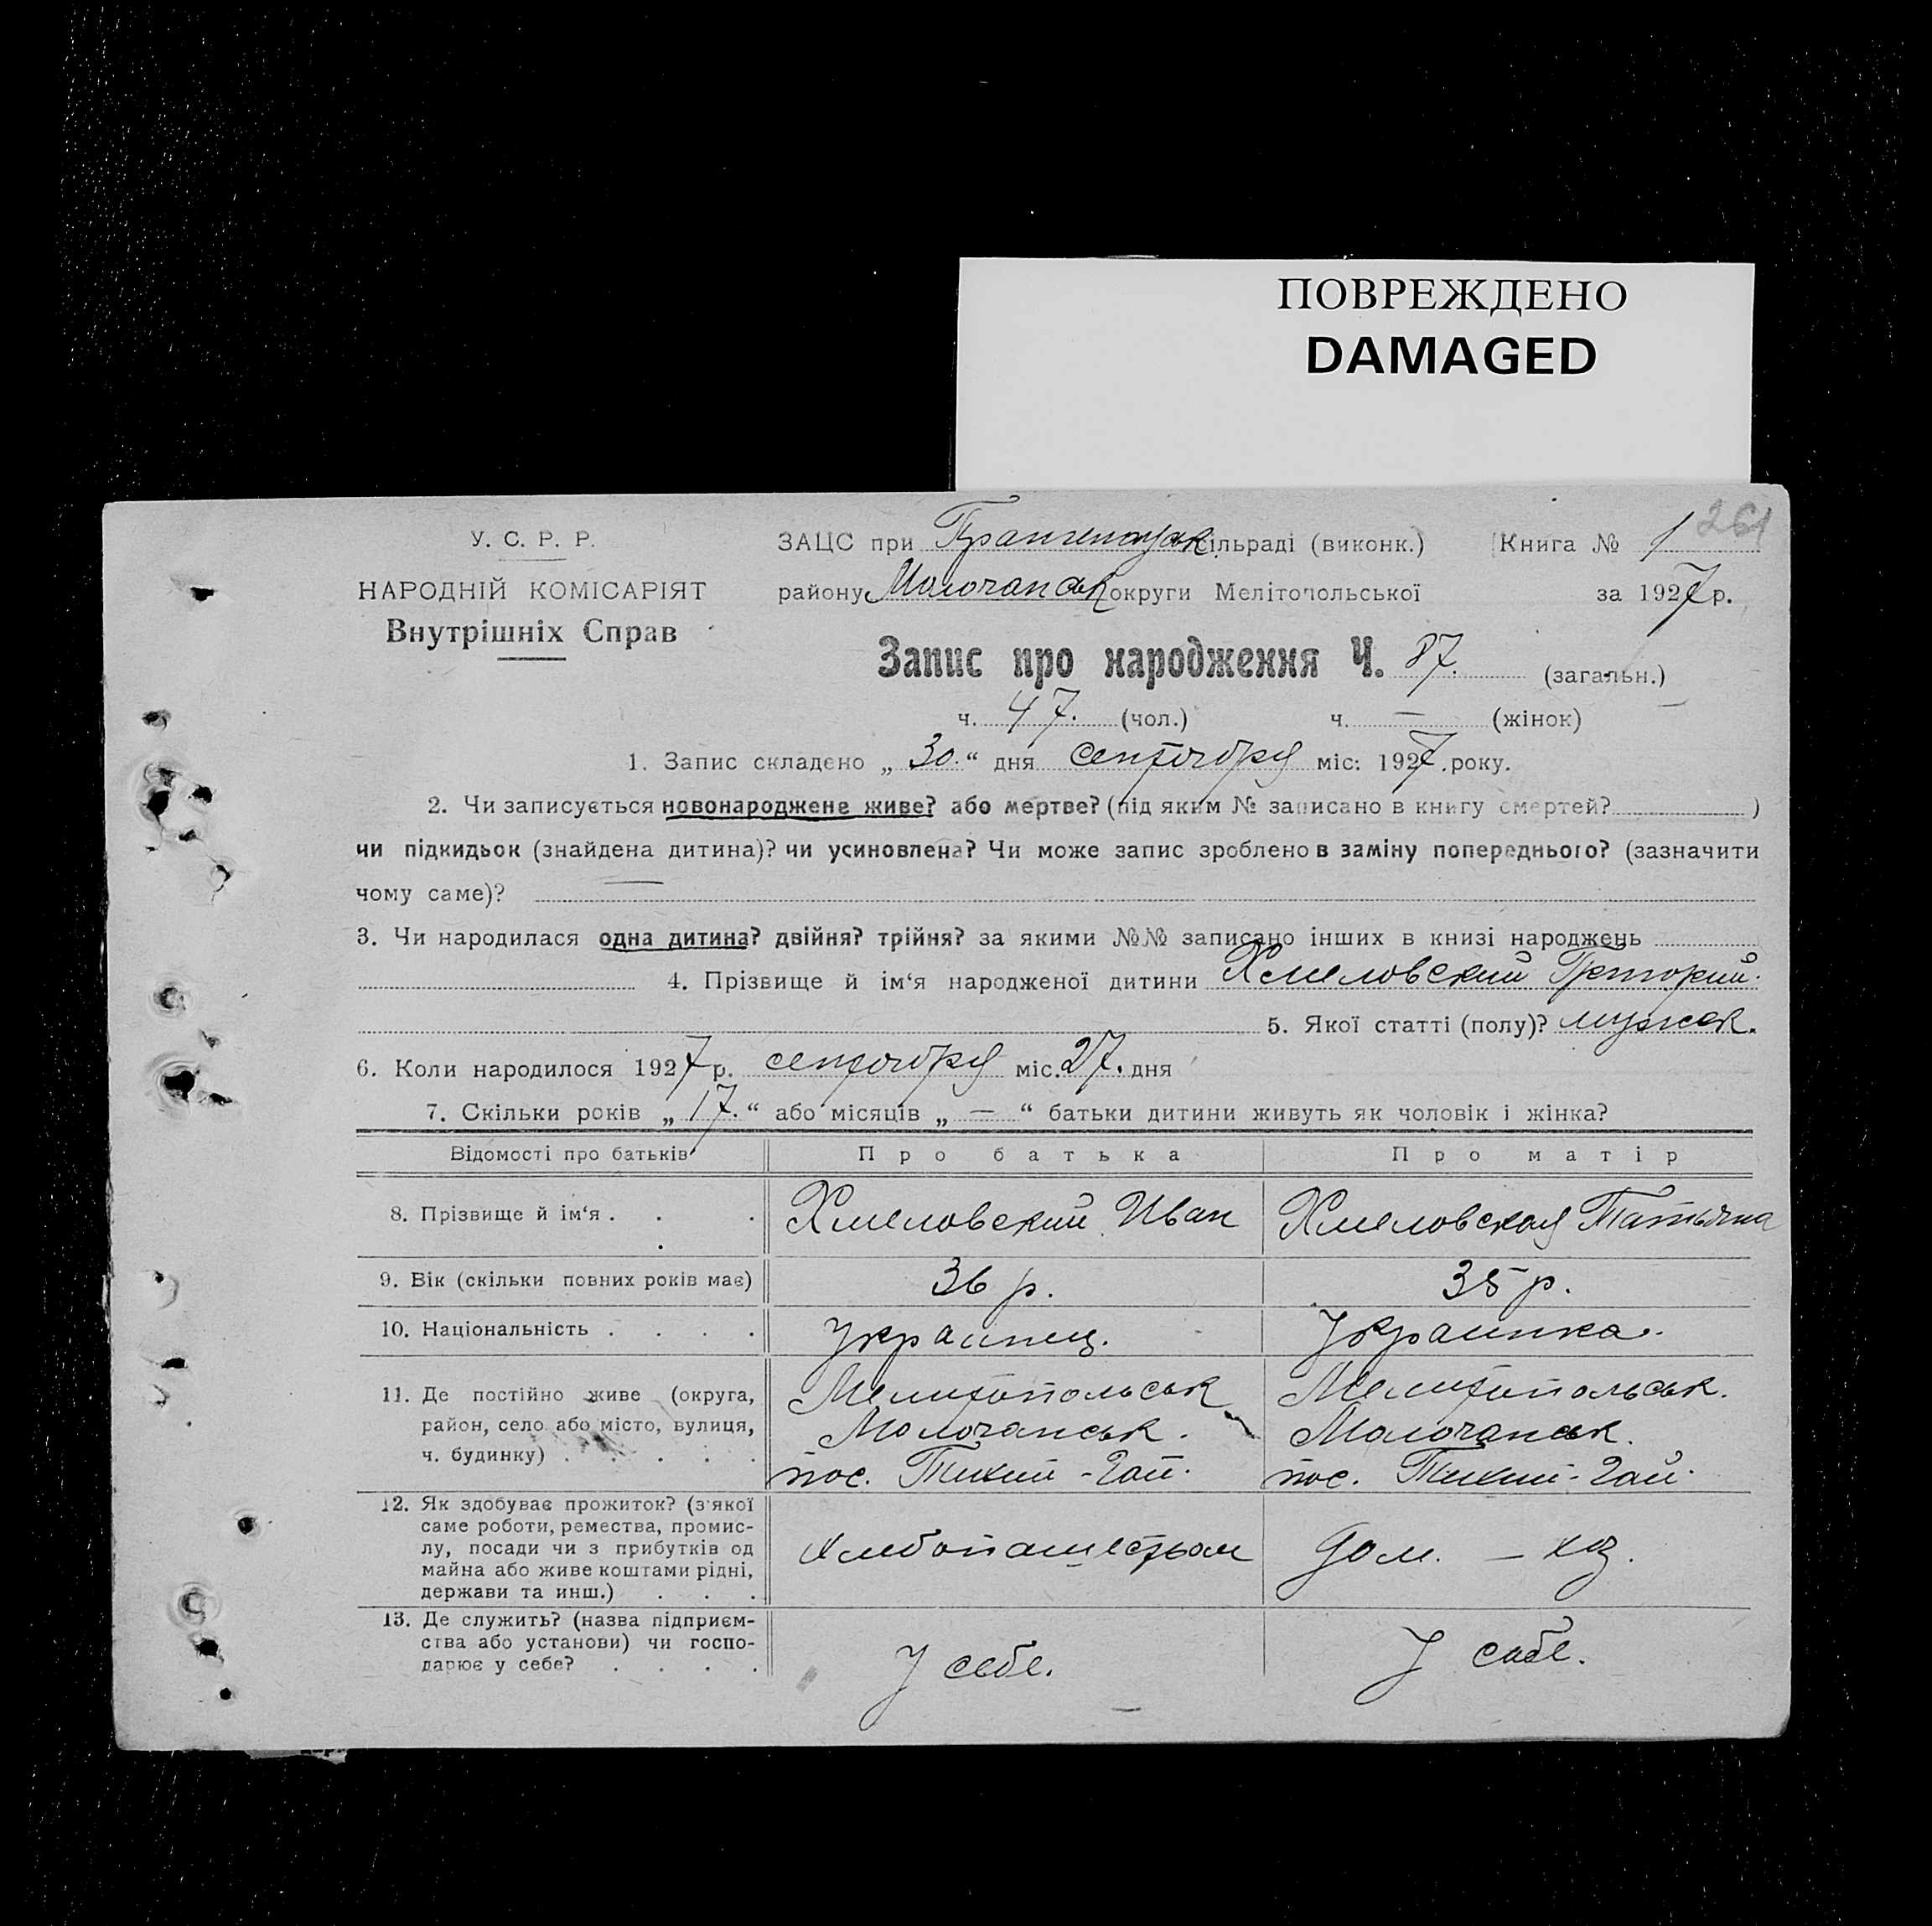 ПОВРЕЖДЕНО
DAMAGED
У. С. Р. Р.
НАРОДНІЙ КОМІСАРІЯТ
Внутрішніх Справ
ЗАЦС при сільраді (виконк.) Книга № 1 261
району Молочанськ округи Мелітопольської за 1927 р.
Запис про народження Ч. 87. (загальн.)
ч. 47. (чол.) ч. — (жінок)
1. Запис складено „ 30. “ дня сентября міс: 1927. року.
2. Чи записується новонароджене живе? або мертве? (під яким № записано в книгу смертей? )
чи підкидьок (знайдена дитина)? чи усиновлена? Чи може запис зроблено в заміну попереднього? (зазначити
чому саме)? —
3. Чи народилася одна дитина? двійня? трійня? за якими №№ записано інших в книзі народжень
4. Прізвище й ім‘я народженої дитини Хмеловский Григорий.
5. Якої статті (полу)? мужск.
6. Коли народилося 1927 р. сентября міс. 27. дня
7. Скільки років „ 17. “ або місяців „ — “ батьки дитини живуть як чоловік і жінка?
Відомості про батьків Про батька Про матір
8. Прізвище й ім‘я . . . Хмеловский Иван Хмеловская Татьяна
9. Вік (скільки повних років має) 36 р. 35 р.
10. Національність . . . . Украинец. Украинка.
11. Де постійно живе (округа, Мелитопольськ Мелитопольськ.
район, село або місто, вулиця, Молочанськ. Молочанськ.
ч. будинку) . . . . . пос. Тихий-Гай. пос. Тихий-Гай.
12. Як здобуває прожиток? (з'якої
саме роботи, ремества, промис-
лу, посади чи з прибутків од хлебопашеством дом. — хоз.
майна або живе коштами рідні,
держави та инш.) . . .
13. Де служить? (назва підприєм-
ства або установи) чи госпо- У себе. У себе.
дарює у себе? . . . .